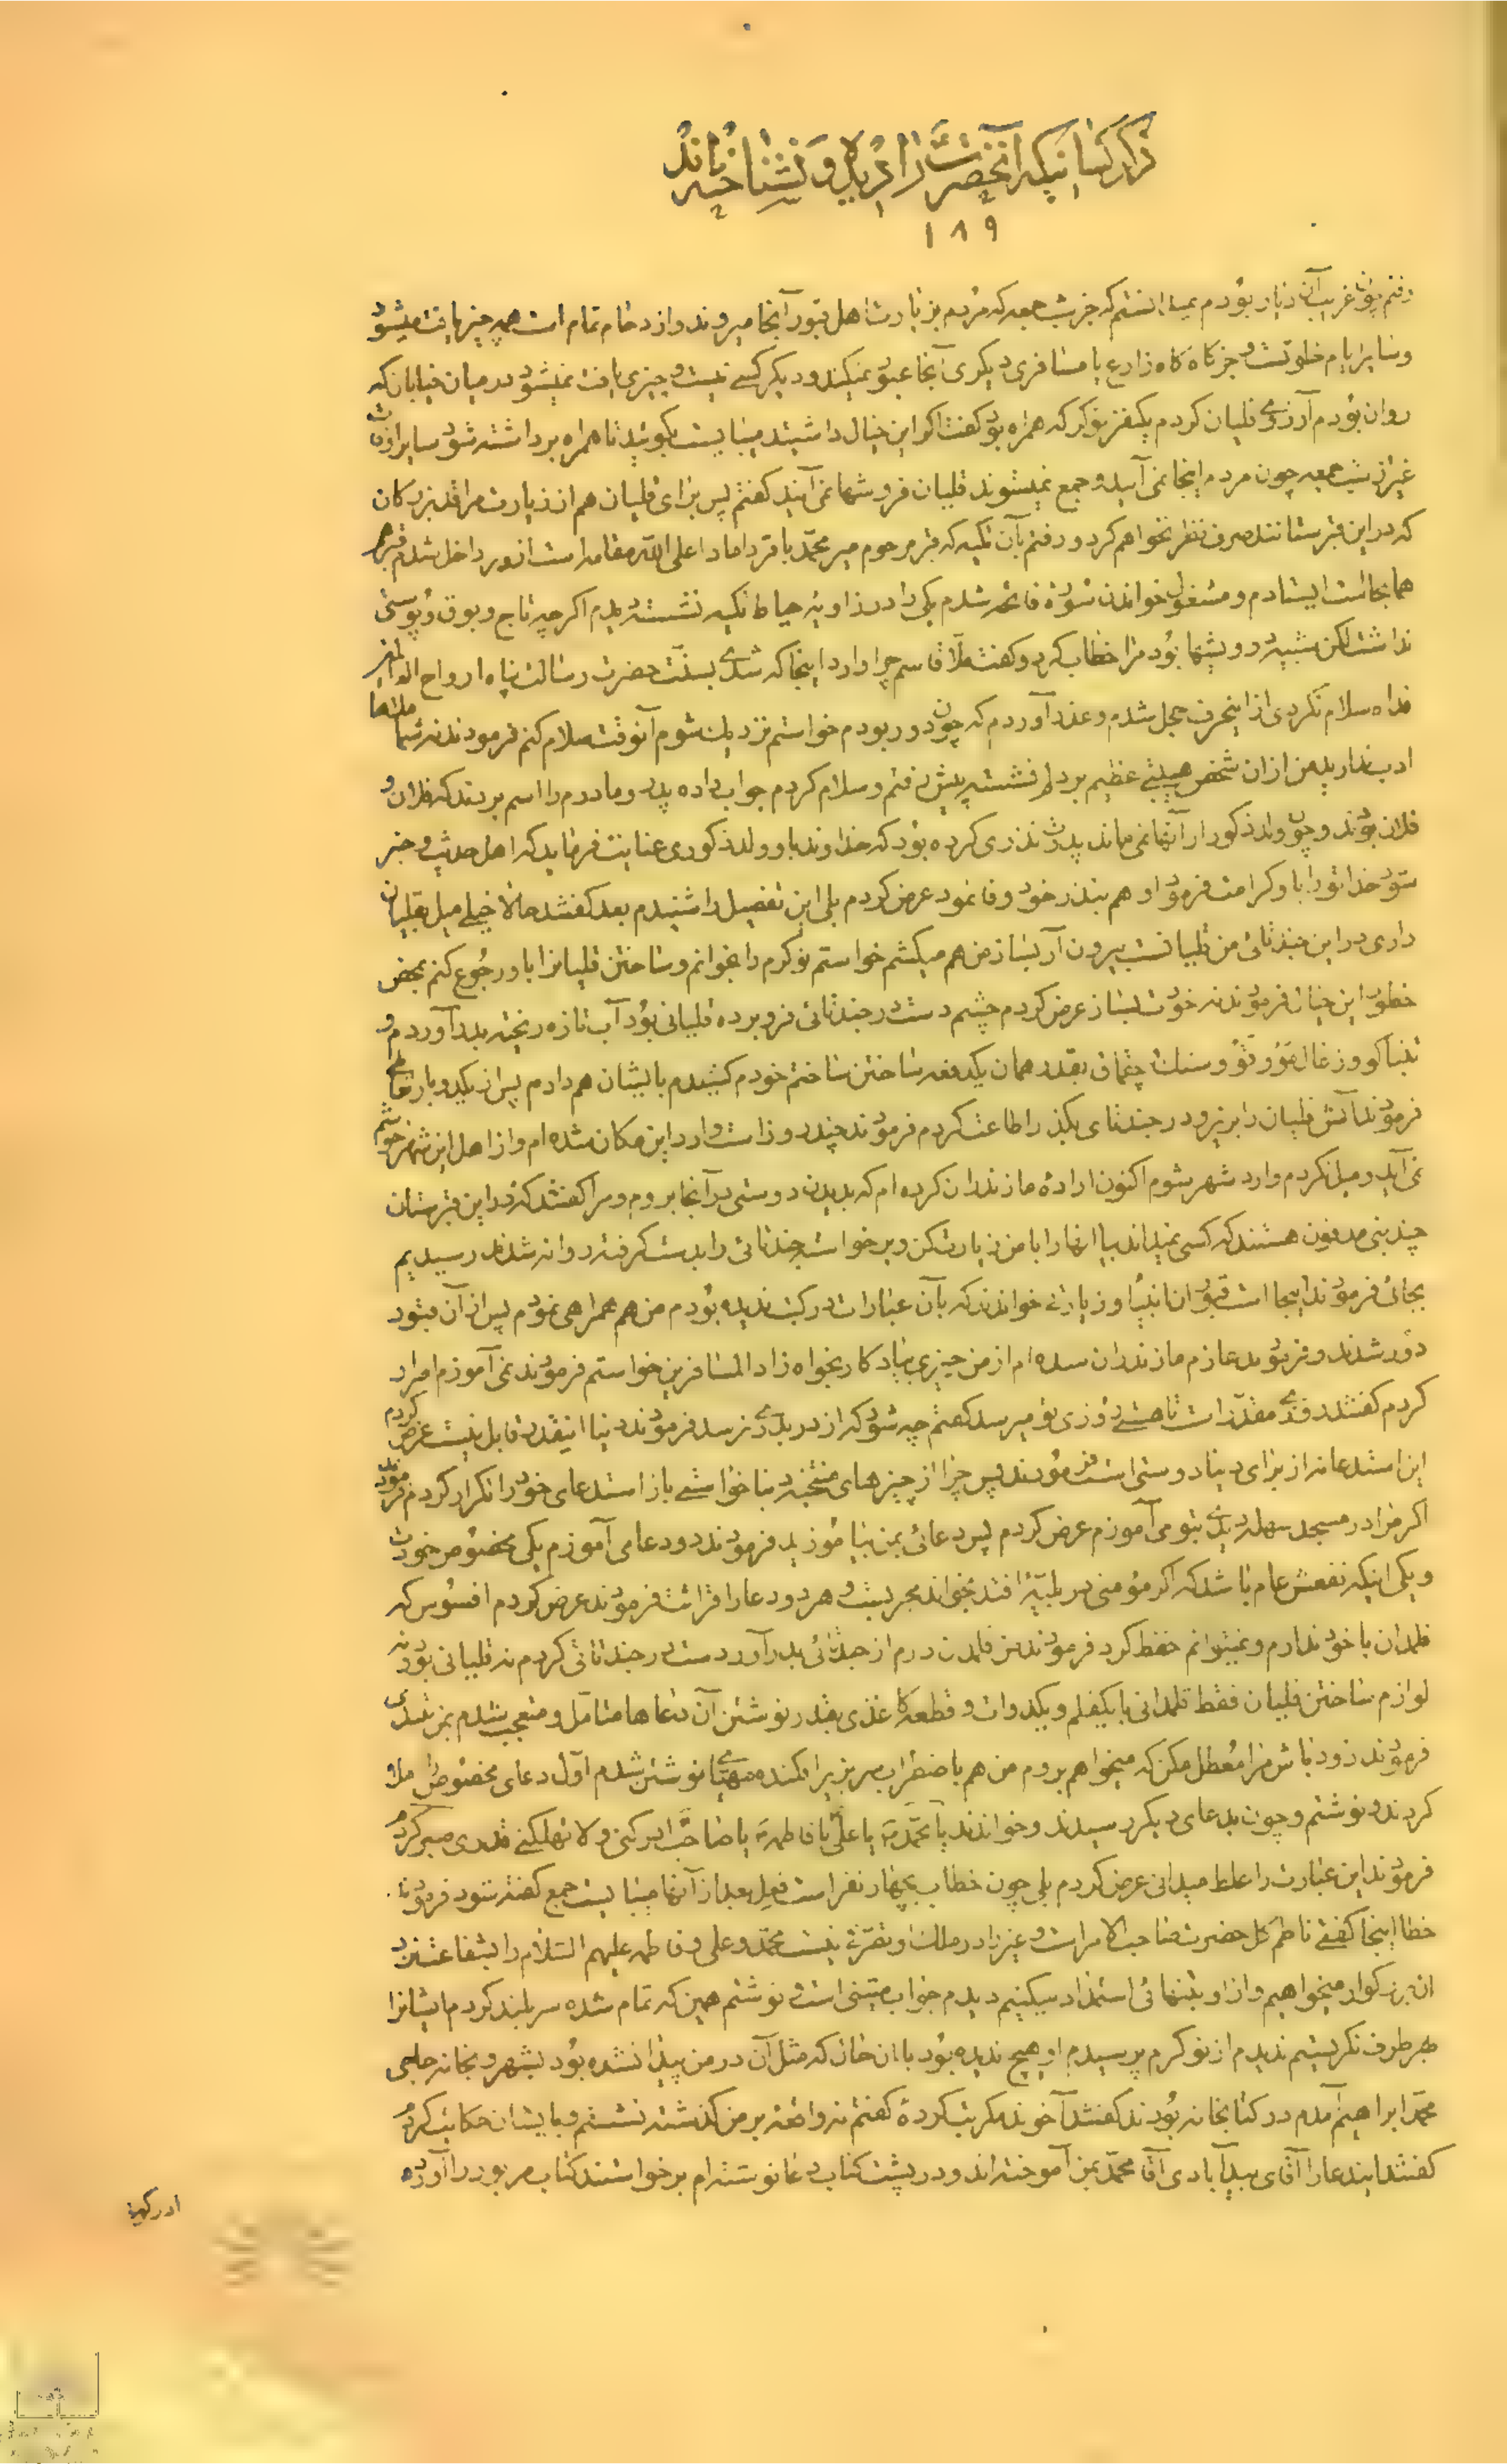 ذکر کسانیکه آنحضرت را دیده و نشناخته‌اند
۱۸۹
رفتم چون غریب آن دیار بودم نمیدانستم که جز شب جمعه که مردم بزیارت اهل قبور آنجا میروند و ازدحام تمام است همه چیز یافت میشود
و سایر ایام خلوتست و جز گاه گاه زارع یا مسافری دیگری آنجا عبور نمیکند و دیگر کسی نیست و چیزی یافت نمیشود در میان خیابان که
روان بودم آرزوی قلیان کردم یکنفر نوکر که همراه بود گفت اگر این خیال داشتید میبایست بگوئید تا همراه برداشته شود سایر اوقات
غیر از شب جمعه چون مردم اینجا نمی‌آیند و جمع نمیشوند قلیان فروشها نمی‌آیند گفتم پس برای قلیان هم از زیارت مراقد بزرگان
که در این قبرستانند صرف نظر نخواهم کرد و رفتم بآن تکیه که قبر مرحوم میر محمد باقر داماد اعلی الله مقامه است از در داخل شدم قبرهم
همانجاست ایستادم و مشغول خواندن سوره فاتحه شدم یکی را در زاویه حیاط تکیه نشسته دیدم اگر چه تاج و بوق و پوستی
نداشت لکن شبیه درویشها بود مرا خطاب کرد و گفت ملا قاسم چرا وارد اینجا که شدی بسنت حضرت رسالت پناه ارواح العالمین
فداه سلام نکردی از اینحرف خجل شدم و عذر آوردم که چون دور بودم خواستم نزدیک شوم آنوقت سلام کنم فرمودند نه شما ملاها
ادب ندارید من از آن شخص هیبتی عظیم بر دلم نشست پیش رفتم و سلام کردم جواب داده پدر و مادرم را اسم بردند که فلان و
فلان بودند و چون ولد ذکور از آنها نمی‌ماند پدرت نذری کرده بود که خداوند باو ولد ذکوری عنایت فرماید که اهل حدیث و خبر
شود خدا تو را باو کرامت فرمود او هم بنذر خود وفا نمود عرض کردم بلی این تفصیل را شنیدم بعد گفتند حالا خیلی میل بقلیان
داری در این چنتائی من قلیانست بیرون آر بساز من هم میکشم خواستم نوکرم را بخوانم و ساختن قلیانرا باو رجوع کنم بمحض
خطور این خیال فرمودند نه خودت بساز عرض کردم چشم دست در چنتائی فرو برده قلیانی بود آب تازه ریخته بدر آوردم و
تنباکو و زغال و سنک چقماق بقدر همان یکدفعه ساختن ساختم خودم کشیدم بایشان هم دادم پس از یکدو بار
فرمودند آتش قلیان را بریز و در چنتای بگذار اطاعت کردم فرمودند چند روز است وارد این مکان شده‌ام و از اهل این شهر خوشم
نمی‌آید و میل نکردم وارد شهر شوم اکنون اراده مازندران کرده‌ام که بدیدن دوستی در آنجا بروم و مرا گفتند که در این قبرستان
چند نبی مدفون هستند که کسی نمیداند بیا آنها را با من زیارت کن و برخواست چنتائی را بدست گرفت روانه شدند رسیدیم
بجائی فرمودند اینجا است قبور انبیا و زیارتی خواندند که بآن عبارات در کتب ندیده بودم من هم همراهی نمودم پس از آن قبور
دور شدند و فرمودند عازم مازندران شده‌ام از من چیزی بیادگار بخواه زاد المسافرین خواستم فرمودند نمی‌آموزم اصرار
کردم گفتند رزق مقدر است تا هستی روزی تو میرسد گفتم چه شود که از در بدری نرسد فرمودند دنیا اینقدر قابل نیست عرض کردم
این استدعا نه از برای دنیا دوستی است فرمودند پس چرا از چیزهای منتخب دنیا خواستی باز استدعای خود را تکرار کردم فرمودند
اگر مرا در مسجد سهله دیدی بتو می‌آموزم عرض کردم پس دعائی بمن بیاموزید فرمودند دو دعا می‌آموزم یکی مخصوص خودت
و یکی اینکه نفعش عام باشد که اگر مؤمنی در بلیه افتد بخواند مجربست و هر دو دعا را قرائت فرمودند عرض کردم افسوس که
قلمدان با خود ندارم و نمیتوانم حفظ کرد فرمودند من قلمدان دارم از چنتائی بدر آور دست در چنتائی کردم نه قلیانی بود نه
لوازم ساختن قلیان فقط قلمدانی با یکقلم و یکدوات و قطعه کاغذی بقدر نوشتن آن دعاها متأمل و متعجب شدم بمن بتندی
فرمودند زود باش مرا معطل مکن که میخواهم بروم من هم با اضطراب سر بزیر افکنده مهیای نوشتن شدم اول دعای مخصوص املاء
کردند و نوشتم و چون بدعای دیگر رسیدند و خواندند یا محمد یا علی یا فاطمه یا صاحب الزمان ادرکنی و لا تهلکنی قدری صبر کردم
فرمودند این عبارت را غلط میدانی عرض کردم بلی چون خطاب بچهار نفر است فعل بعد از آنها میبایست جمع گفته شود فرمودند
خطا اینجا گفتی ناظم کل حضرت صاحب الامر است و غیر را در ملک او تصرفی نیست محمد و علی و فاطمه علیهم السلام را بشفاعت نزد
آن بزرگوار میخواهیم و از او بتنهائی استمداد میکنیم دیدم جواب متینی است نوشتم همین که تمام شده سر بلند کردم ایشانرا
بهر طرف نگریستم ندیدم از نوکرم پرسیدم او هیچ ندیده بود با آن حال که مثل آن در من پیدا نشده بود بشهر و بخانه حاجی
محمد ابراهیم آمدم در کتابخانه بودند گفتند آخوند مگر تب کردهٔ گفتم نه واقعه بر من گذشته نشستم و بایشان حکایت کردم
گفتند ایندعا را آقای بیدآبادی آقا محمد بمن آموخته‌اند و در پشت کتاب دعا نوشته‌ام برخواستند کتاب مزبور را آورده